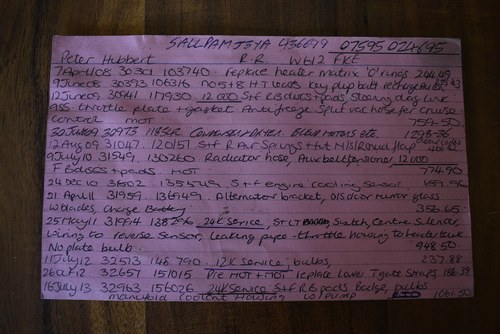 SALLPAMJSYA 436699 07595 024695
Peter Hubbert R.R. W612 FKE
7April08 30301 103740. replace heater matrix 'O' rings 244.49
9June08 30393 106316 No5+8 H.T leads key plup batt
12June09 30941 117930 12,000 S+f B discs + pads, Steering drag link
gss. throttle plate + gasket Antifreeze Split vac hose for cruise
control MOT 759-50
30June09 30973 118
12Aug09 31047 120157 S+f R Air Springs + hut MIS/Renault Flap
9July10 31549, 130260 Radiator hose, Aux belt tensioner, 12000
F B discs + pads MOT 774.90
24Dec10 31802 135549 S+f engine cooling Sensor,
21 April11 31959 136949. Alternator bracket, O/S door mirror glass
W blades, Charge Battery 356.65
25May11 31994 138296 24K Service, St Lt Switch, Centre Silencer
Wiring to reverse Sensor, Leaking pipe - throttle housing to header tank
No plate bulb. 948.50
11July12 32513 148.790. 12K Service, bulbs, 237.88
26Oct12 32657 151015 Pre MOT + MOT replace Lower Tgate Straps 186.38
16July13 32963 156026 24K Service S+f R B pads Badge, bulbs
manifold Coolant Housing w/pump 1061.50